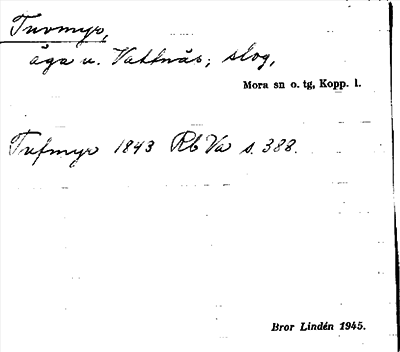 Tuvmyr,
äga u. Vattnäs; skog,
Mora sn o. tg, Kopp. l.
Tufmyr 1843 Rb Va s. 388.
Bror Lindén 1945.